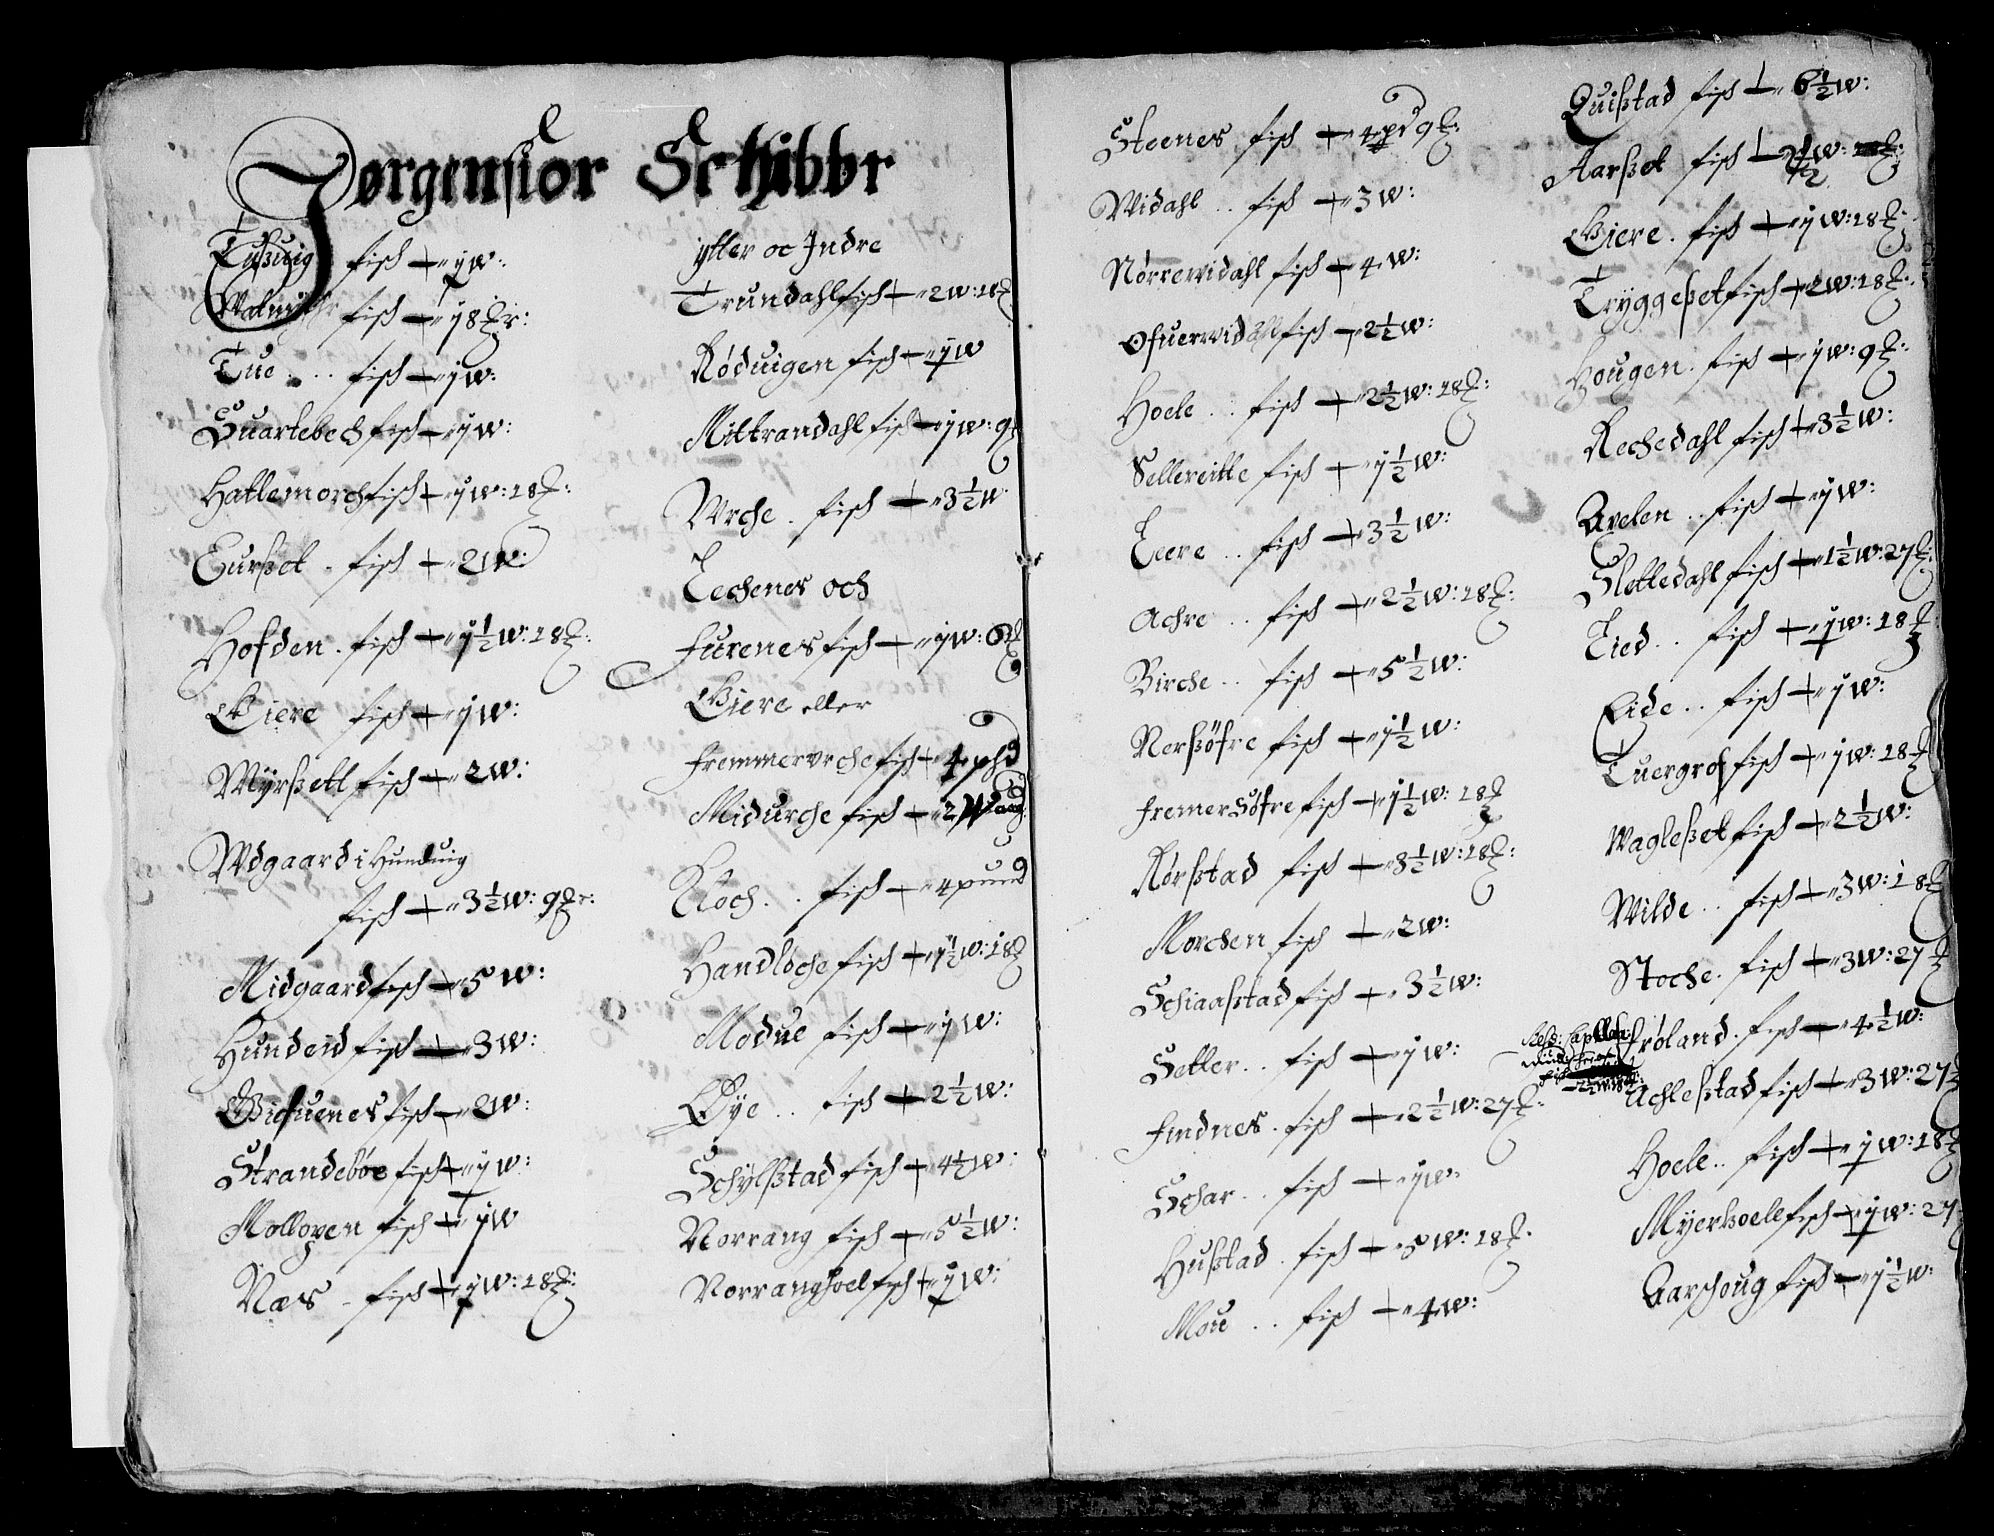 Jørgensiør Schibbr
Tußuig fisk + 1 w:
fisk + 18 ℔r:
Tue . . . fisk + 1 w:
Suartebech fisk + 1 w:
Hatlemorch fisk + 1 w: 18 ℔:
Eurßet . fisk + 2 w:
Hofden . fisk + 1½ w: 18 ℔:
Giere fisk + 1 w:
Myrßett fisk + 2 w:
Wdgaard i Hunduig
fisk + 3½ w: 9 ℔r:
Midgaard fisk + 5 w:
Hundeid fisk + 3 w:
Giefuenes fisk + 2 w:
Strandebøe fisk + 1 w:
Molloren fisk + 1 w
Næs - fisk + 1 w: 18 ℔:
ytter oc Indre
Trundahl fisk + 2 w: 18 ℔
Røduigen fisk + 1 w
Mittrandahl fisk + 1 w: 9
Wrche . fisk + 3½ w
Lechenes och
Furenes fisk + 1 w: 6 ℔
Giere eller
Fremmervrche fisk + 4 phd
Midurche fisk + 2
Kloch . . fisk + 4 pund
Handløche fisk + 1½ w: 18 ℔
Modue fisk + 1 w:
Øye . . fisk + 2½ w:
Schylßtad fisk + 4½ w:
Norrang fisk + 5½ w:
Norranghoel fisk + 1 w:
Steenes fisk + 4 pd 9 ℔:
Widahl . . fisk + 3 w:
Nørrewidahl fisk + 4 w:
Øfuerwidahl fisk + 2½ w:
Hoele . . fisk + 2½ w: 18 ℔:
Sellereitte fisk + 1½ w:
Leere . . fisk + 3½ w:
Achre . . fisk + 2½ w: 18 ℔:
Birche . . fisk + 5½ w:
Nerßöfre fisk + 1½ w:
Fremersöfre fisk + 1½ w: 18 ℔
Rørßtad fisk + 3½ w: 18 ℔:
Morchen fisk + 2 w:
Schiaaßtad fisk + 3½ w:
Setter . . fisk + 1 w:
Findnes . fisk + 2½ w: 27 ℔:
Schar . . fisk + 1 w
Hußtad . fisk + 5 w: 18 ℔.
Mou . . fisk + 4 w:
Quißtad fisk + 6½ w:
Aarßet fisk +
Giere . fisk + 1 w: 18 ℔:
Tryggeßet fisk + 2 w: 18 ℔:
Hougen . fisk + 1 w: 9 ℔:
Rechedahl fisk + 3½ w:
Avelen . . fisk + 1 w:
Slettedahl fisk + 1½ w: 27 ℔:
Lied . . fisk + 1 w: 18 ℔
Eide . . fisk + 1 w:
Tuergrof fisk + 1 w: 18 ℔
Wagleßet fisk + 2½ w:
Wilde . . fisk + 3 w: 18 ℔
Stoche . fisk + 3 w: 27 ℔
Frøland . fisk + 4½ w:
Achleßtad fisk + 3 w: 27 ℔
Hoele . . fisk + 1 w: 18 ℔
Myerhoell fisk + 1 w: 27
Aarhoug fisk + 1½ w: